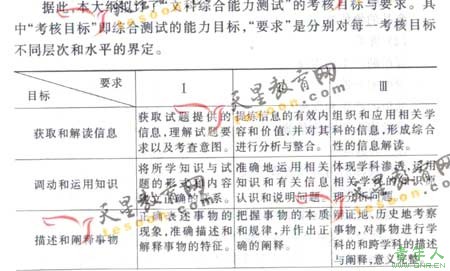 据此 本大纲拟炸了"文科综合能力测试"的考核目标与要求。其
中"考核目标"即综合测试的能力目标,"要求"是分别对每一考核目标
不同层次和水平的界定。
要求
目标
Ⅰ
Ⅱ
Ⅲ
获取和解读信息
获取试题提供的
信息,理解试题要
求以及考查意图。
提炼信息的有效内
容和价值,并对其
进行分析与整合。
组织和应用相关学
科的信息,形成综合
性的信息解读。
调动和运用知识
将所学知识与试
题的形式和内容
建立正确的联系。
准确地运用相关
知识和有关信息
认识和说明问题
体现学科渗透,运用
相关学科的知识原
理分析问题。
描述和阐释事物
正确表达事物的
现象,准确描述和
解释事物的特征。
把握事物的本质
和规律,并作出正
确的阐释。
辩证地、历史地考察
事物,对事物进行学
科的和跨学科的描述
与阐释,意义完整。
天星教育网
tesoon.com
天星教育网
tesoon.com
天星教育网
tesoon.com
青年人